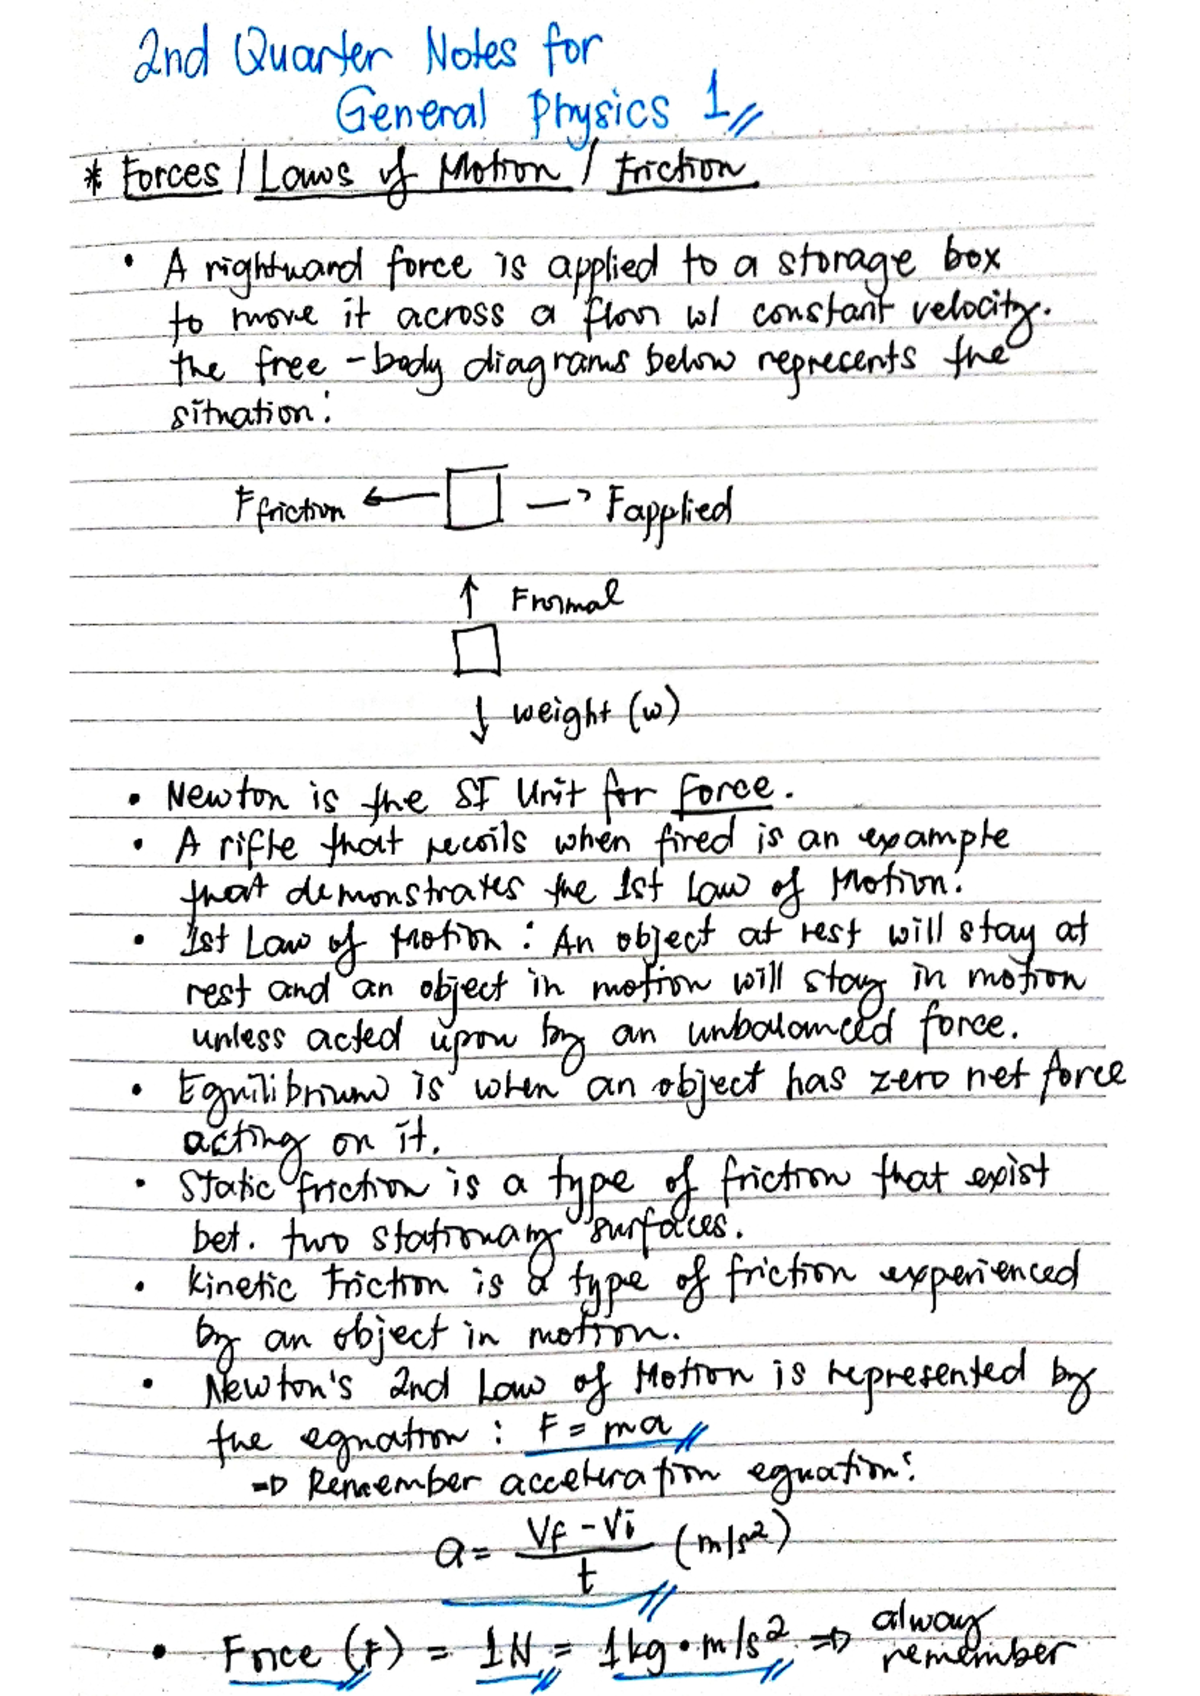 2nd Quarter Notes for
General Physics 1
* Forces / Laws of Motion / Friction
• A rightward force is applied to a storage box
to move it across a floor w/ constant velocity.
the free-body diagrams below represents the
situation:
Ffriction ← → Fapplied
↑ Fnormal
↓ weight (w)
• Newton is the SI Unit for Force.
• A rifle that recoils when fired is an example
that demonstrates the 1st Law of Motion.
• 1st Law of Motion : An object at rest will stay at
rest and an object in motion will stay in motion
unless acted upon by an unbalanced force.
• Equilibrium is when an object has zero net force
acting on it.
• Static friction is a type of friction that exist
bet. two stationary surfaces.
• Kinetic Friction is a type of friction experienced
by an object in motion.
• Newton's 2nd Law of Motion is represented by
the equation : F = ma
⇒ Remember acceleration equation:
a = Vf - Vi / t (m/s²)
• Force (F) = 1N = 1kg • m/s² ⇒ always
remember